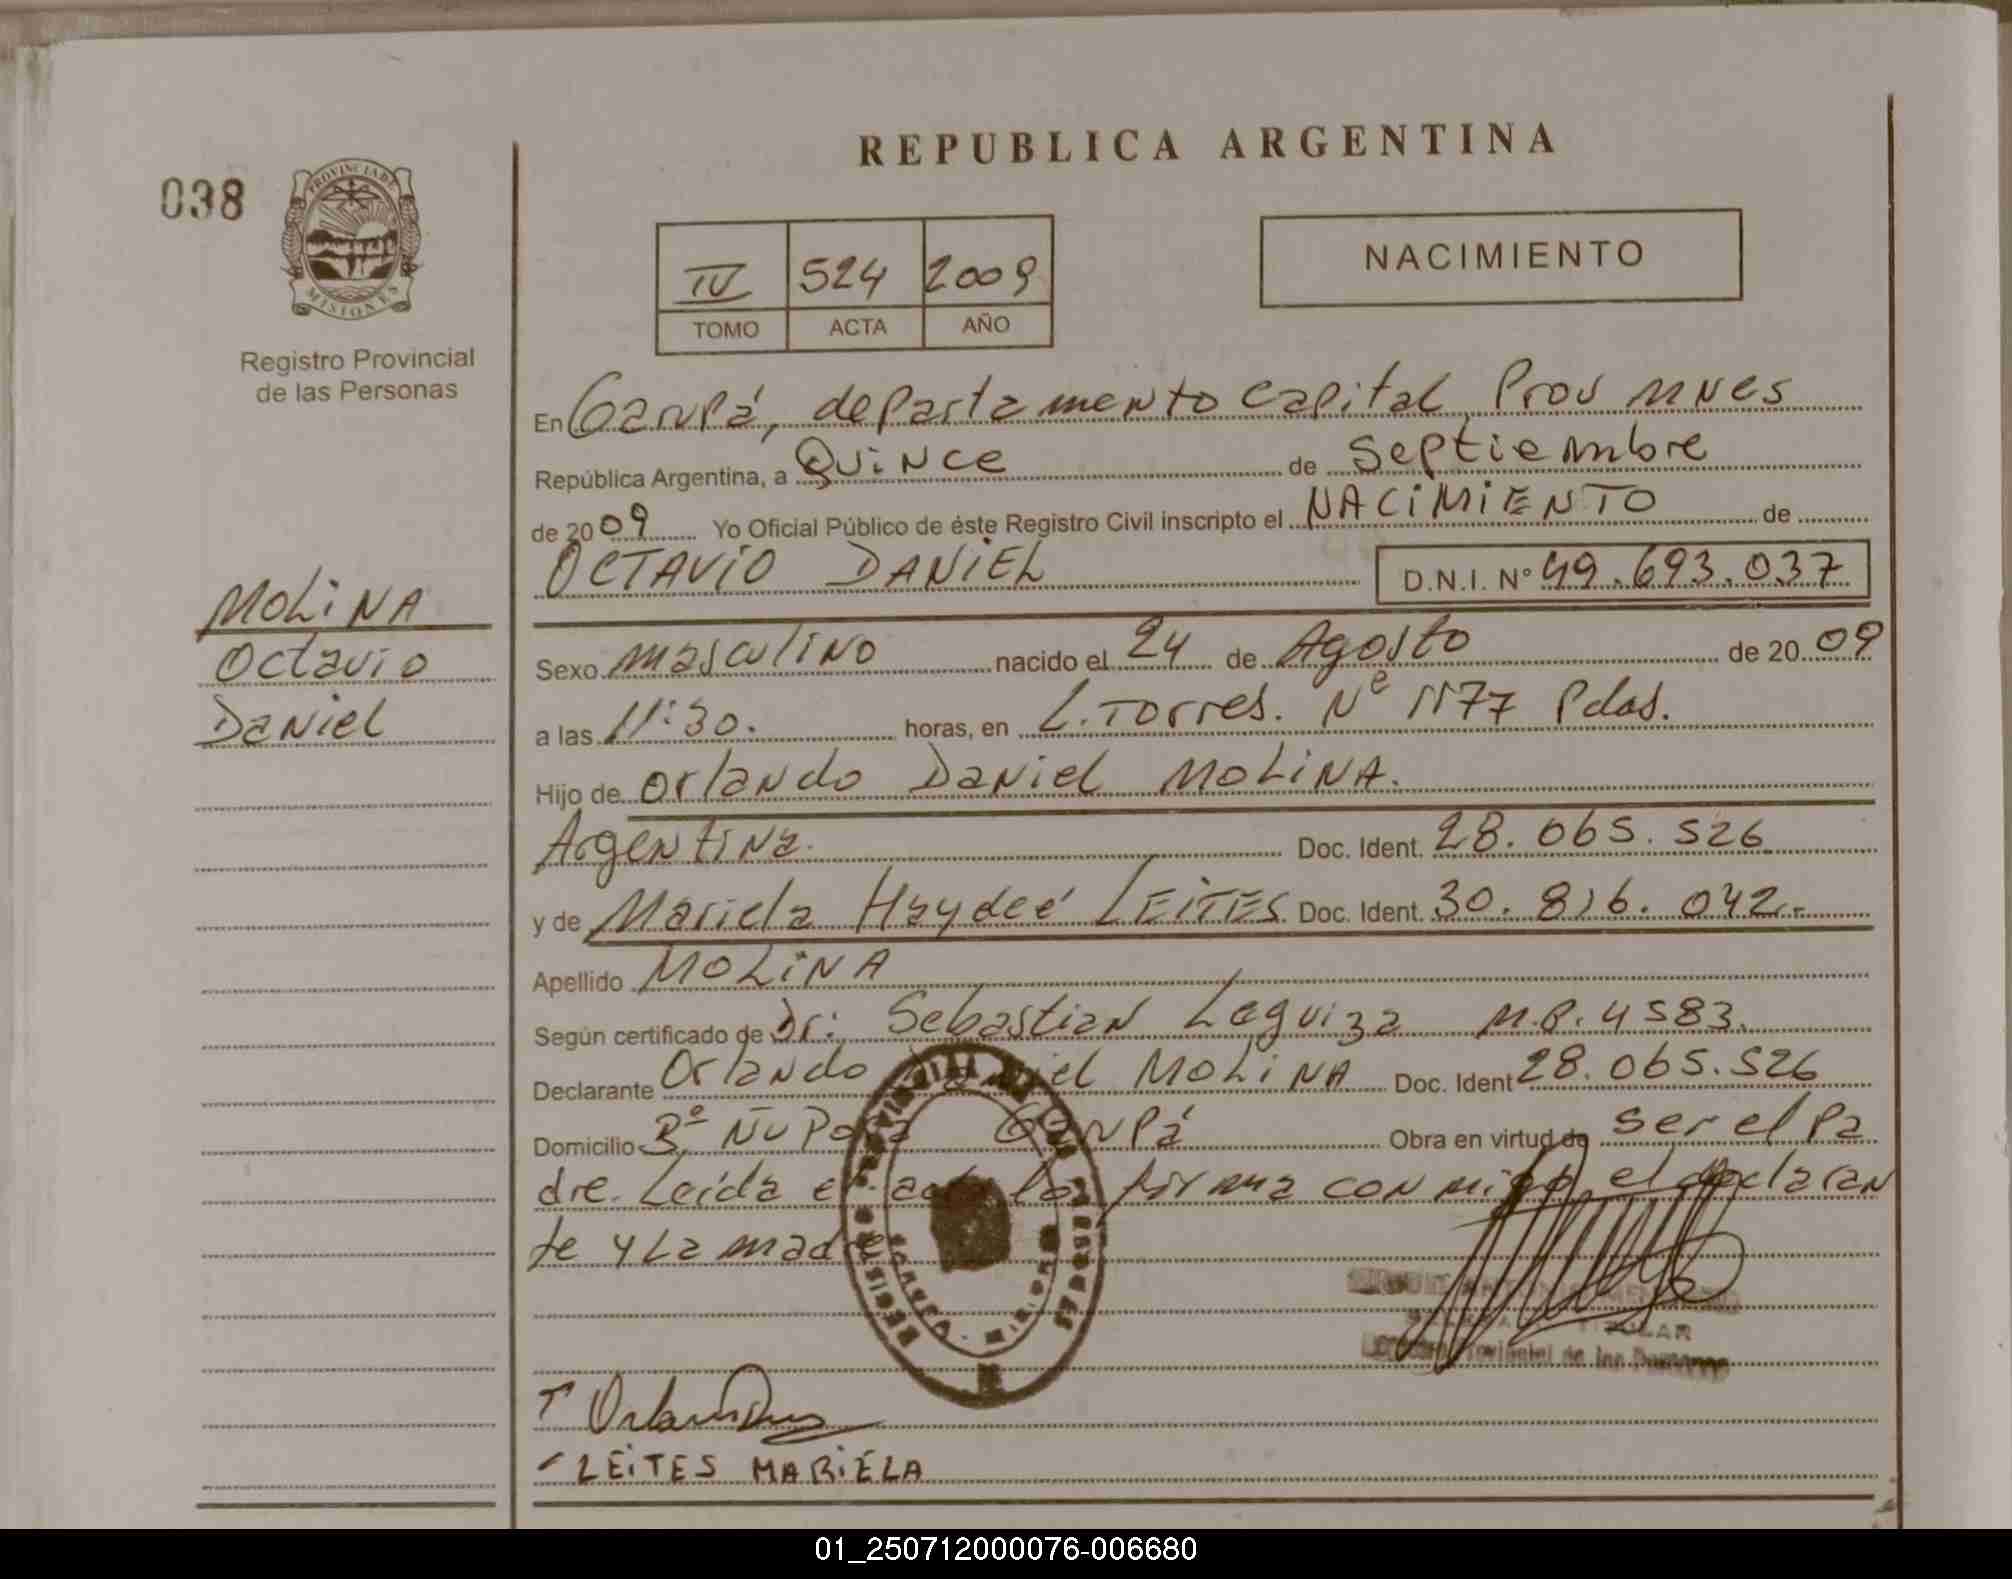 REPUBLICA ARGENTINA
038
PROVINCIA DE
MISIONES
Registro Provincial
de las Personas
IV 524 2009
TOMO ACTA AÑO
NACIMIENTO
En Garupá, departamento Capital Prov Mnes
República Argentina, a Quince de septiembre
de 2009 Yo Oficial Público de éste Registro Civil inscripto el NACIMIENTO de
OCTAVIO DANIEL D.N.I. Nº 49.693.037
MOLINA
Octavio
Daniel
Sexo masculino nacido el 24 de Agosto de 2009
a las 11:30. horas, en L. Torres. Nº 1177 Pdas.
Hijo de Orlando Daniel MOLINA.
Argentina. Doc. Ident. 28.065.526
y de Mariela Haydeé LEITES Doc. Ident. 30.816.042.-
Apellido MOLINA
Según certificado de Dr: Sebastian Leguiza M.P. 4583.
Declarante Orlando Daniel MOLINA Doc. Ident 28.065.526
Domicilio Bº Ñu Pora Garupá Obra en virtud de ser el pa
dre. Leída el acta la firma conmigo el declaran
te y La madre
TITULAR
Provincial de las Personas
Orlando
LEITES MARIELA
01_250712000076-006680